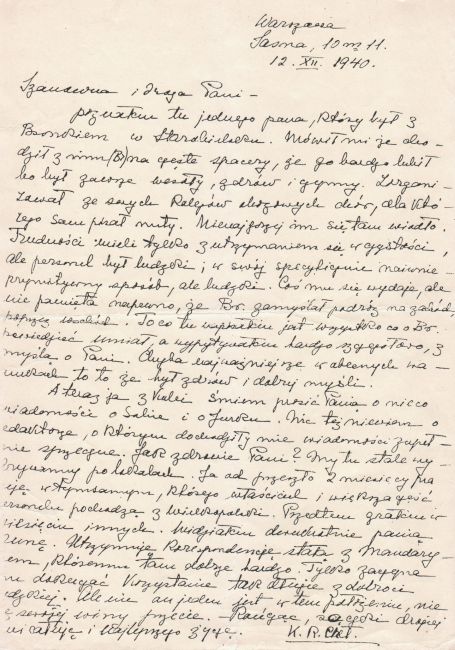 Warszawa
Jasna, 10 m 11.
12. XII. 1940.
Szanowna i droga Pani –
poznałem tu jednego pana, który był z
Bronkiem w Starobielsku. Mówił mi że cho-
dził z nim (B) na częste spacery, że go bardzo lubił
bo był zawsze wesoły, zdrów i czynny. Zorgani-
zował ze swych kolegów obozowych chór, dla któ-
rego sam pisał nuty. Nienajgorzej im się tam wiodło.
Trudności mieli tylko z utrzymaniem się w czystości,
ale personel był ludzki i, w swój specyficznie naiwnie-
prymitywny sposób, ale ludzki. Coś mu się wydaje, ale
nie pamięta napewno, że Br. zamyślał podróż na zachód,
poprzez wschód. To co tu wypisałem jest wszystko co o Br.
powiedzieć umiał, a wypytywałem bardzo szczegółowo, z
myślą o Pani. Chyba najważniejsze w obecnych wa-
runkach to to że był zdrów i dobrej myśli.
A teraz ja z kolei śmiem prosić Panią o nieco
wiadomości o Sabie i o Jurku. Nic też nie wiem o
, o którym dochodziły mnie wiadomości zupeł-
nie sprzeczne. Jak zdrowie Pani? My tu stale wy-
grywamy po lokalach. Ja od przeszło 2 miesięcy
w tymsamym, którego właściciel i większa część
personelu pochodzą z Wielkopolski. Przedtem grałem w
dziesięciu innych. Widziałem dwukrotnie panią
. Utrzymuję korespondencję stałą z
em, któremu tam dobrze bardzo. Tylko zaczyna
mu dokuczać korzystanie tak długie z dobroci
ludzkiej. Ale nie on jeden jest w tem położeniu, nie
ze swojej winy przecie. – Kończąc, rączki drogiej
Pani całuję i najlepszego życzę.
K. R.